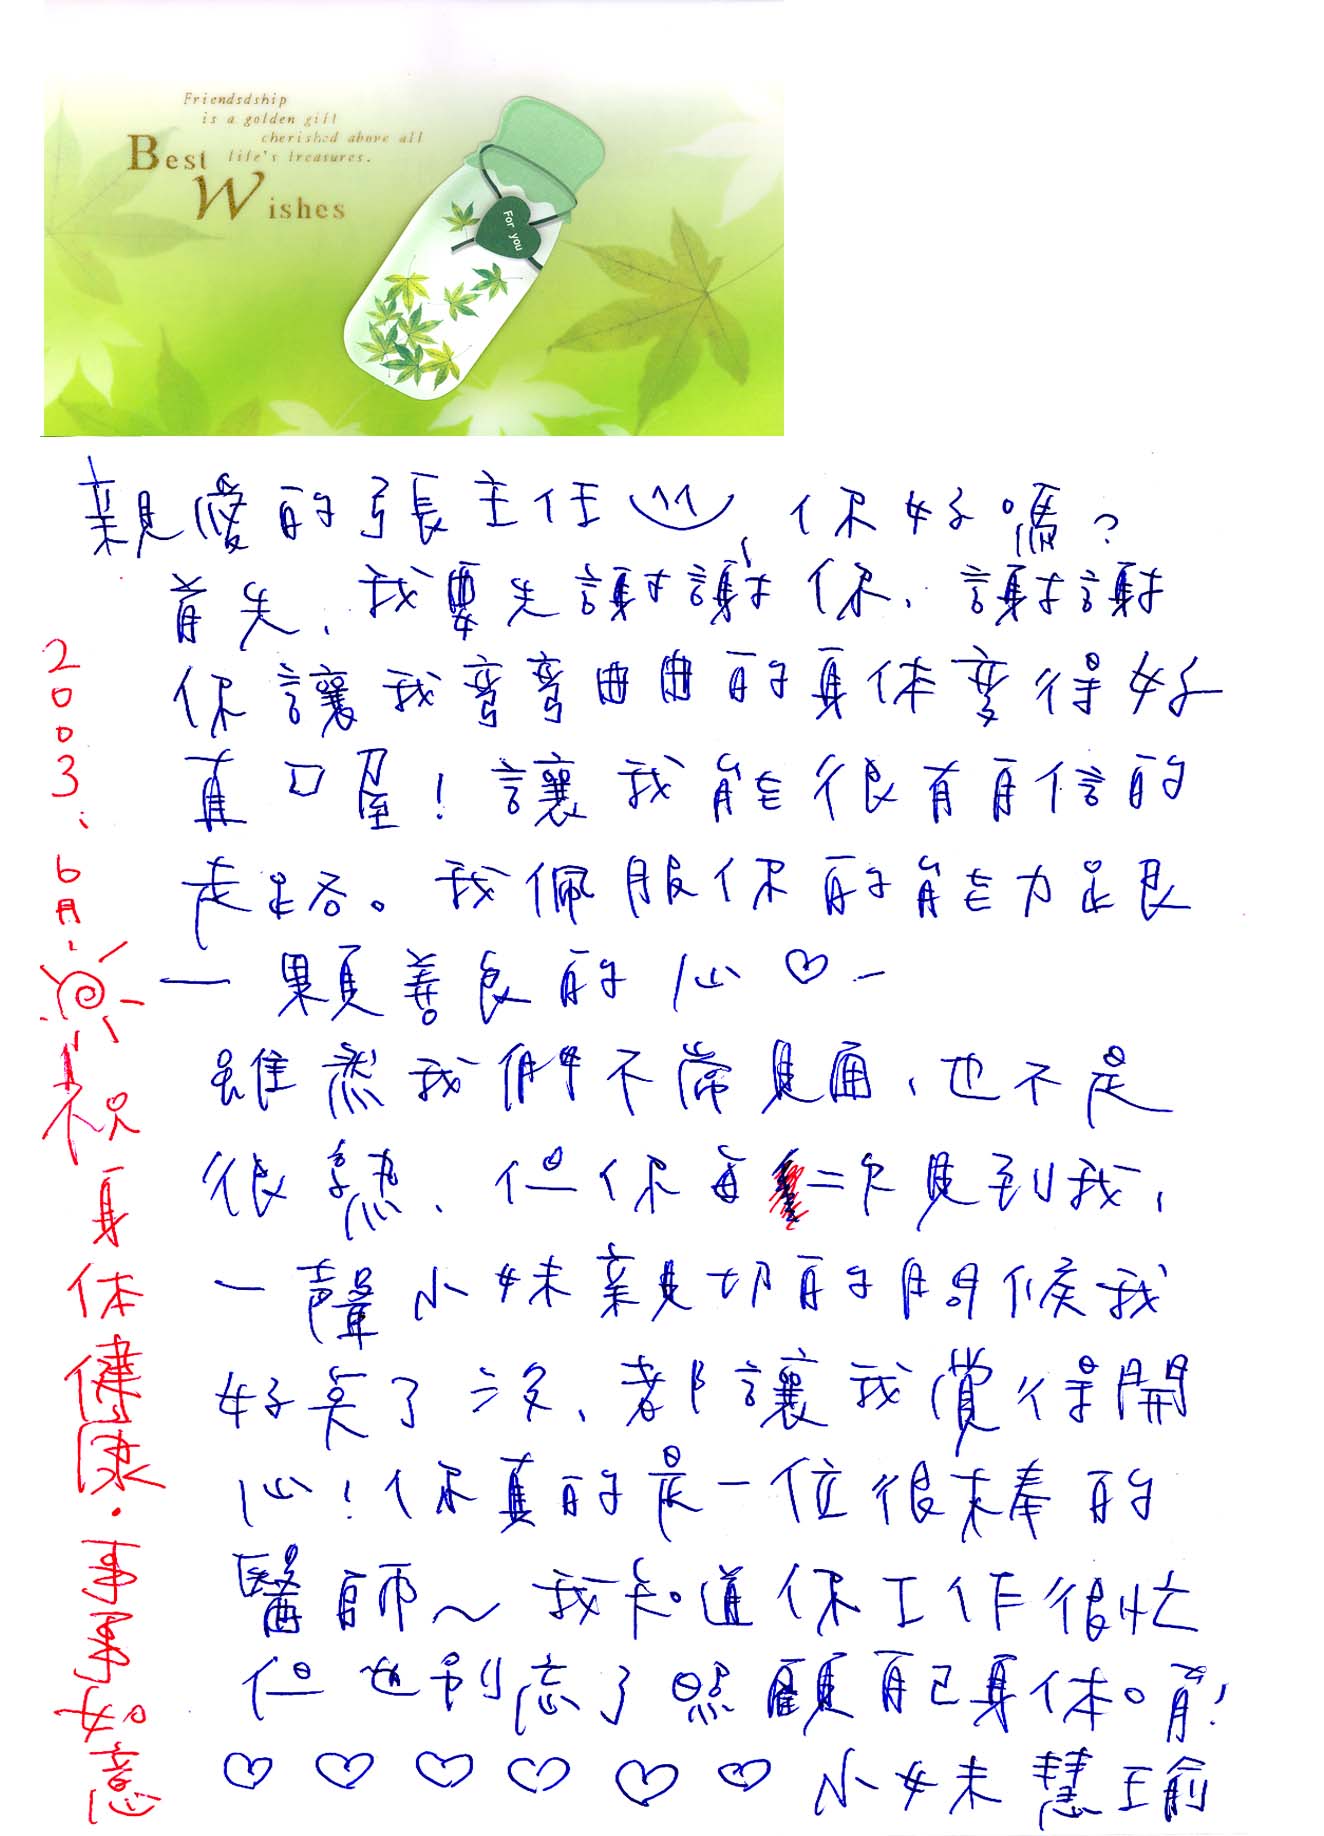 Friendsdship
is a golden gift
cherished above all
life's treasures.
Best
Wishes
For you
親愛的張主任 你好嗎?
首先、我要先謝謝你、謝謝
你讓我彎彎曲曲的身体變得好
直喔!讓我能很有自信的
走路。我佩服你的能力跟
一顆善良的心♡-
雖然我們不常見面、也不是
很熟、但你每次見到我,
一聲小妹親切的問候我
好莫了沒、都讓我覺得開
心!你真的是一位很棒的
醫師~我知道你工作很忙
但也別忘了照顧自己身体。唷!
♡♡♡♡♡♡小妹慧瑜
2003、6月、
祝身体健康.事事如意